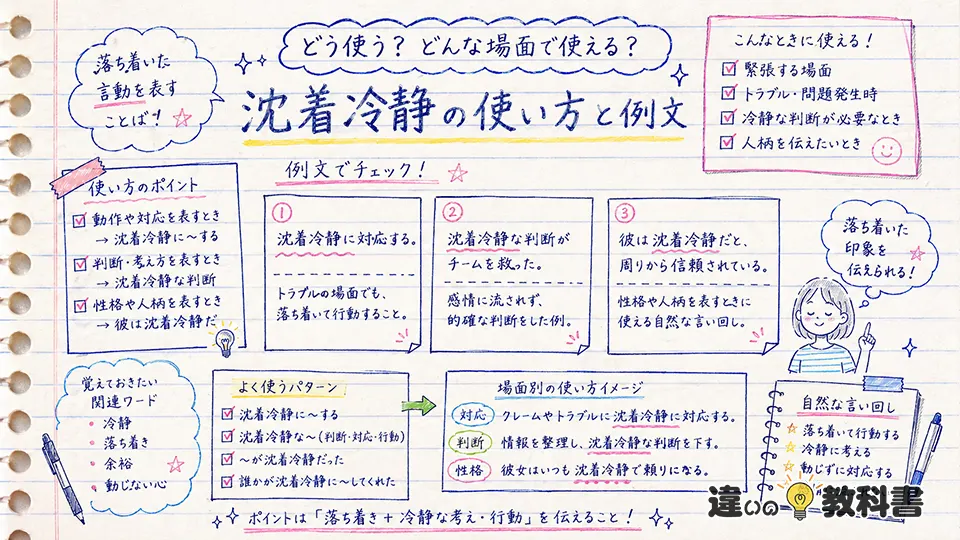 落ち着いた
言動を表す
ことば！
どう使う？ どんな場面で使える？
沈着冷静の使い方と例文
こんなときに使える！
緊張する場面
トラブル・問題発生時
冷静な判断が必要なとき
人柄を伝えたいとき
使い方のポイント
動作や対応を表すとき
→ 沈着冷静に〜する
判断・考え方を表すとき
→ 沈着冷静な判断
性格や人柄を表すとき
→ 彼は沈着冷静だ
例文でチェック！
①
沈着冷静に対応する。
トラブルの場面でも、
落ち着いて行動すること。
②
沈着冷静な判断が
チームを救った。
感情に流されず、
的確な判断をした例。
③
彼は沈着冷静だと、
周りから信頼されている。
性格や人柄を表すときに
使える自然な言い回し。
落ち着いた
印象を
伝えられる！
覚えておきたい
関連ワード
・冷静
・落ち着き
・余裕
・動じない心
よく使うパターン
沈着冷静に〜する
沈着冷静な〜（判断・対応・行動）
〜が沈着冷静だった
誰かが沈着冷静に〜してくれた
場面別の使い方イメージ
対応 クレームやトラブルに沈着冷静に対応する。
判断 情報を整理し、沈着冷静な判断を下す。
性格 彼女はいつも沈着冷静で頼りになる。
自然な言い回し
落ち着いて行動する
冷静に考える
動じずに対応する
ポイントは「落ち着き＋冷静な考え・行動」を伝えること！
違いの教科書